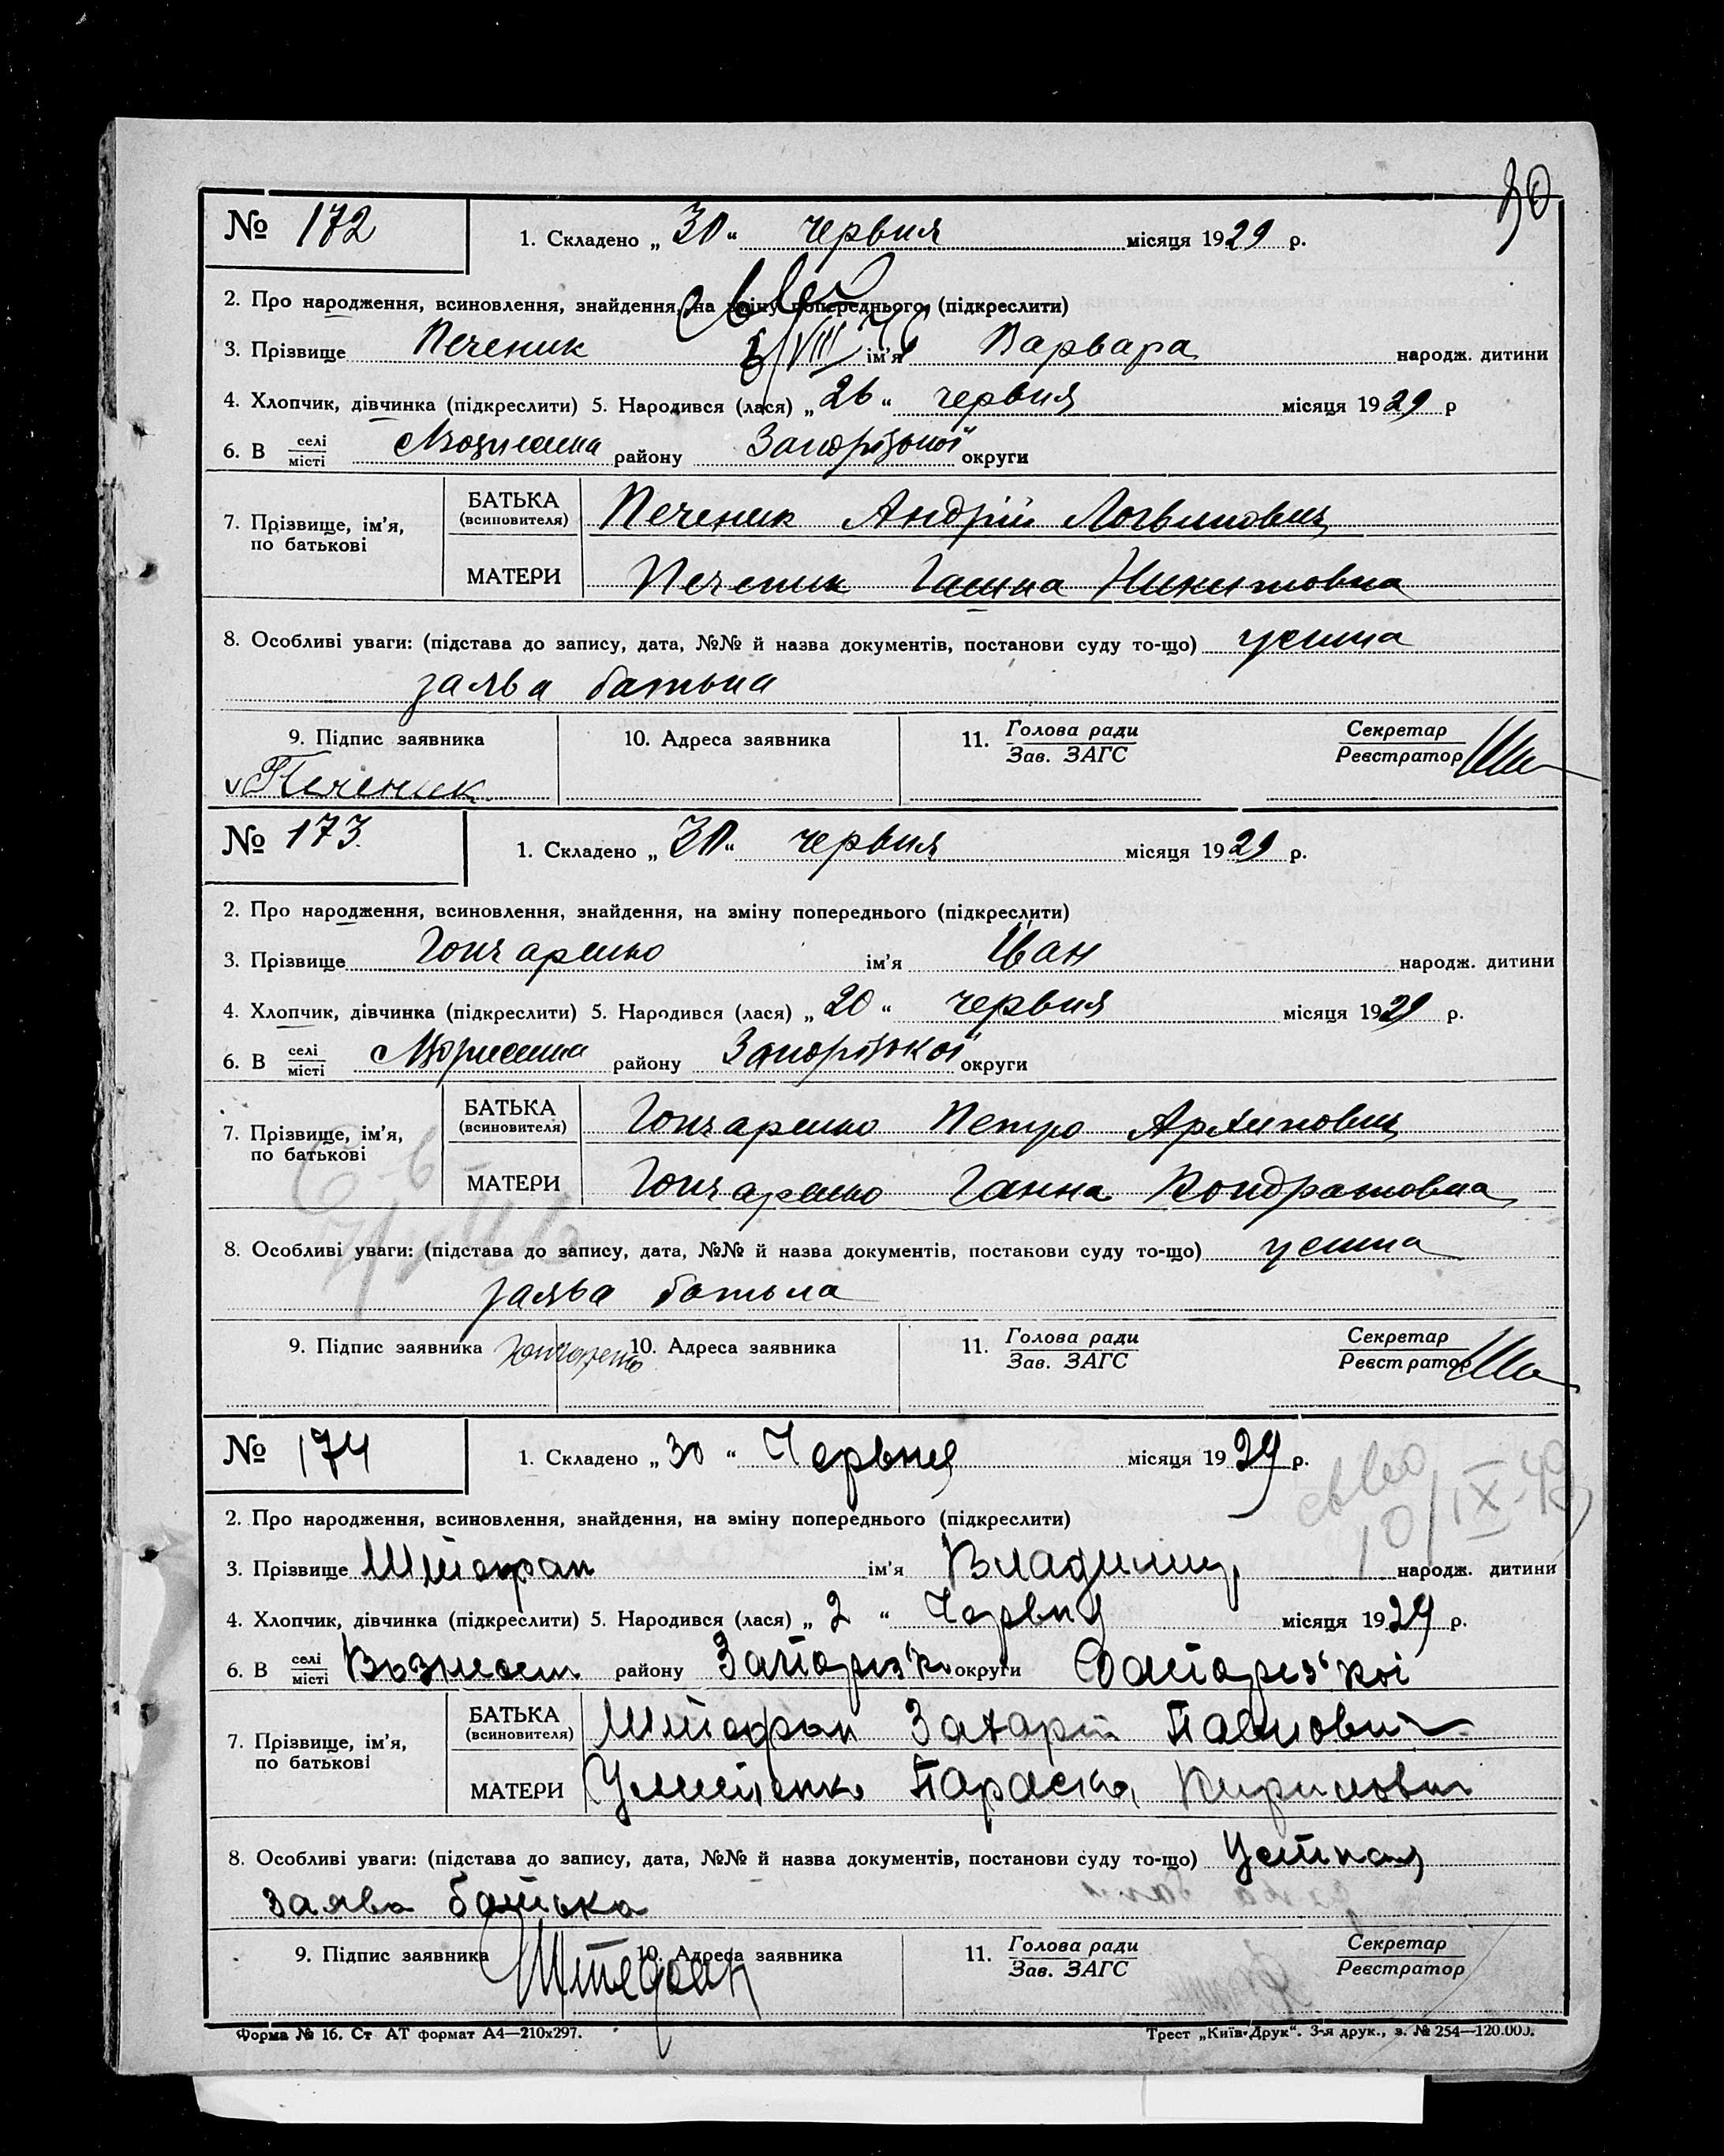 30
№ 172
1. Складено „30“ червня місяця 1929 р.
2. Про народження, всиновлення, знайдення, на зміну попереднього (підкреслити)
3. Прізвище Печеник ім’я Варвара народж. дитини
4. Хлопчик, дівчинка (підкреслити) 5. Народився (лася) „26“ червня місяця 1929 р
6. В селі/місті району Запорізької округи
7. Прізвище, ім’я, по батькові
БАТЬКА (всиновителя) Печеник Андрій Логвинович
МАТЕРИ Печеник Ганна Никитовна
8. Особливі уваги: (підстава до запису, дата, №№ й назва документів, постанови суду то-що) усна
заява батька
9. Підпис заявника 10. Адреса заявника 11. Голова ради/Зав. ЗАГС Секретар/Реєстратор
Печеник
№ 173.
1. Складено „30“ червня місяця 1929 р.
2. Про народження, всиновлення, знайдення, на зміну попереднього (підкреслити)
3. Прізвище Гончаренко ім’я Іван народж. дитини
4. Хлопчик, дівчинка (підкреслити) 5. Народився (лася) „20“ червня місяця 1929 р.
6. В селі/місті району Запорізької округи
7. Прізвище, ім’я, по батькові
БАТЬКА (всиновителя) Гончаренко Петро Архипович
МАТЕРИ Гончаренко Ганна Кондратовна
8. Особливі уваги: (підстава до запису, дата, №№ й назва документів, постанови суду то-що) усна
заява батька
9. Підпис заявника Гончаренко 10. Адреса заявника 11. Голова ради/Зав. ЗАГС Секретар/Реєстратор
№ 174
1. Складено „30“ Червня місяця 1929 р.
2. Про народження, всиновлення, знайдення, на зміну попереднього (підкреслити)
3. Прізвище Штефан ім’я Владимир народж. дитини
4. Хлопчик, дівчинка (підкреслити) 5. Народився (лася) „2“ Червня місяця 1929 р.
6. В селі/місті району Запоріз'к округи Запоріз'кої
7. Прізвище, ім’я, по батькові
БАТЬКА (всиновителя) Штефан Захарій Павлович
МАТЕРИ Параска Кириловна
8. Особливі уваги: (підстава до запису, дата, №№ й назва документів, постанови суду то-що) Устная
заява батька
9. Підпис заявника Штефан 10. Адреса заявника 11. Голова ради/Зав. ЗАГС Секретар/Реєстратор
Форма № 16. Ст АТ формат А4—210х297. Трест „Київ-Друк“. 3-я друк., з. № 254—120.000.